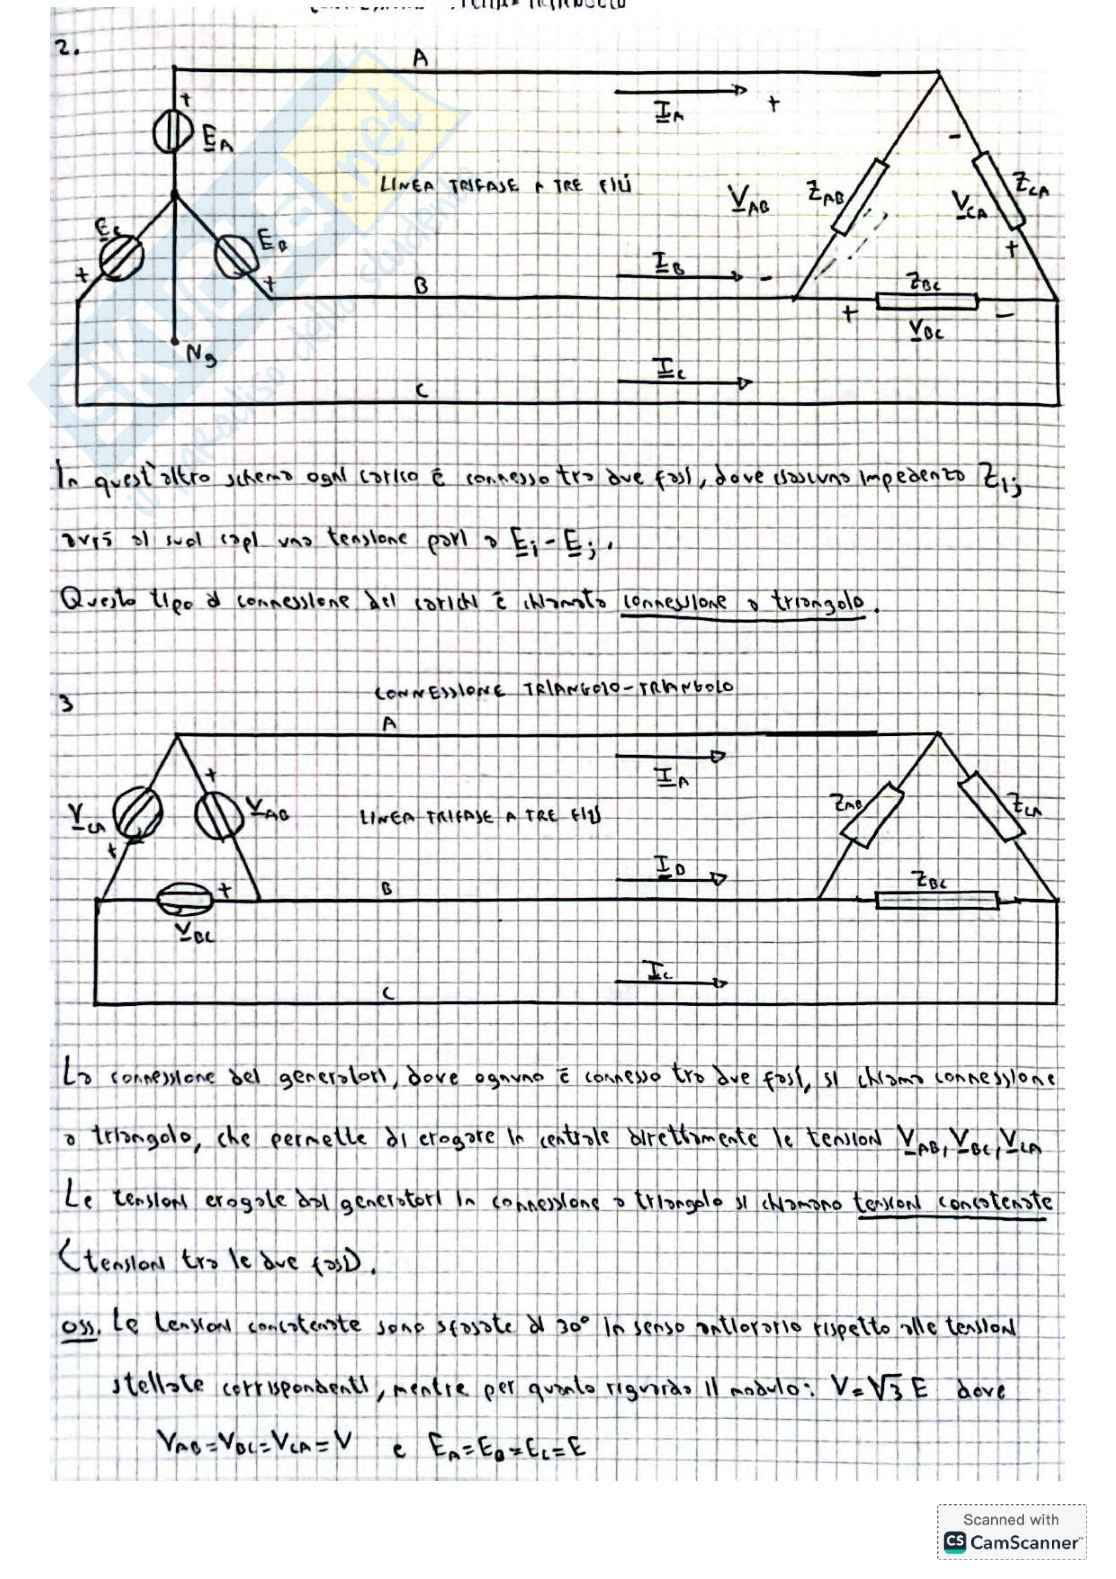 2.
A
+
E_A
I_A
+
-
LINEA TRIFASE A TRE FILI
V_AB
Z_AB
V_CA
Z_CA
E_C
E_B
+
+
I_B
-
+
B
Z_BC
+
-
V_BC
N_g
I_C
C
In quest'altro schema ogni carico è connesso tra due fasi, dove ciascuna impedenza Z_ij
avrà ai suoi capi una tensione pari a E_i - E_j.
Questo tipo di connessione dei carichi è chiamata connessione a triangolo.
3
CONNESSIONE TRIANGOLO-TRIANGOLO
A
I_A
+
V_CA
V_AB
LINEA TRIFASE A TRE FILI
Z_AB
Z_CA
+
I_B
+
B
Z_BC
V_BC
I_C
C
La connessione dei generatori, dove ognuno è connesso tra due fasi, si chiama connessione
a triangolo, che permette di erogare in centrale direttamente le tensioni V_AB, V_BC, V_CA
Le tensioni erogate dai generatori in connessione a triangolo si chiamano tensioni concatenate
(tensioni tra le due fasi).
oss. Le tensioni concatenate sono sfasate di 30° in senso antiorario rispetto alle tensioni
stellate corrispondenti, mentre per quanto riguarda il modulo: V = √3 E dove
V_AB = V_BC = V_CA = V e E_A = E_B = E_C = E
Scanned with
CS CamScanner